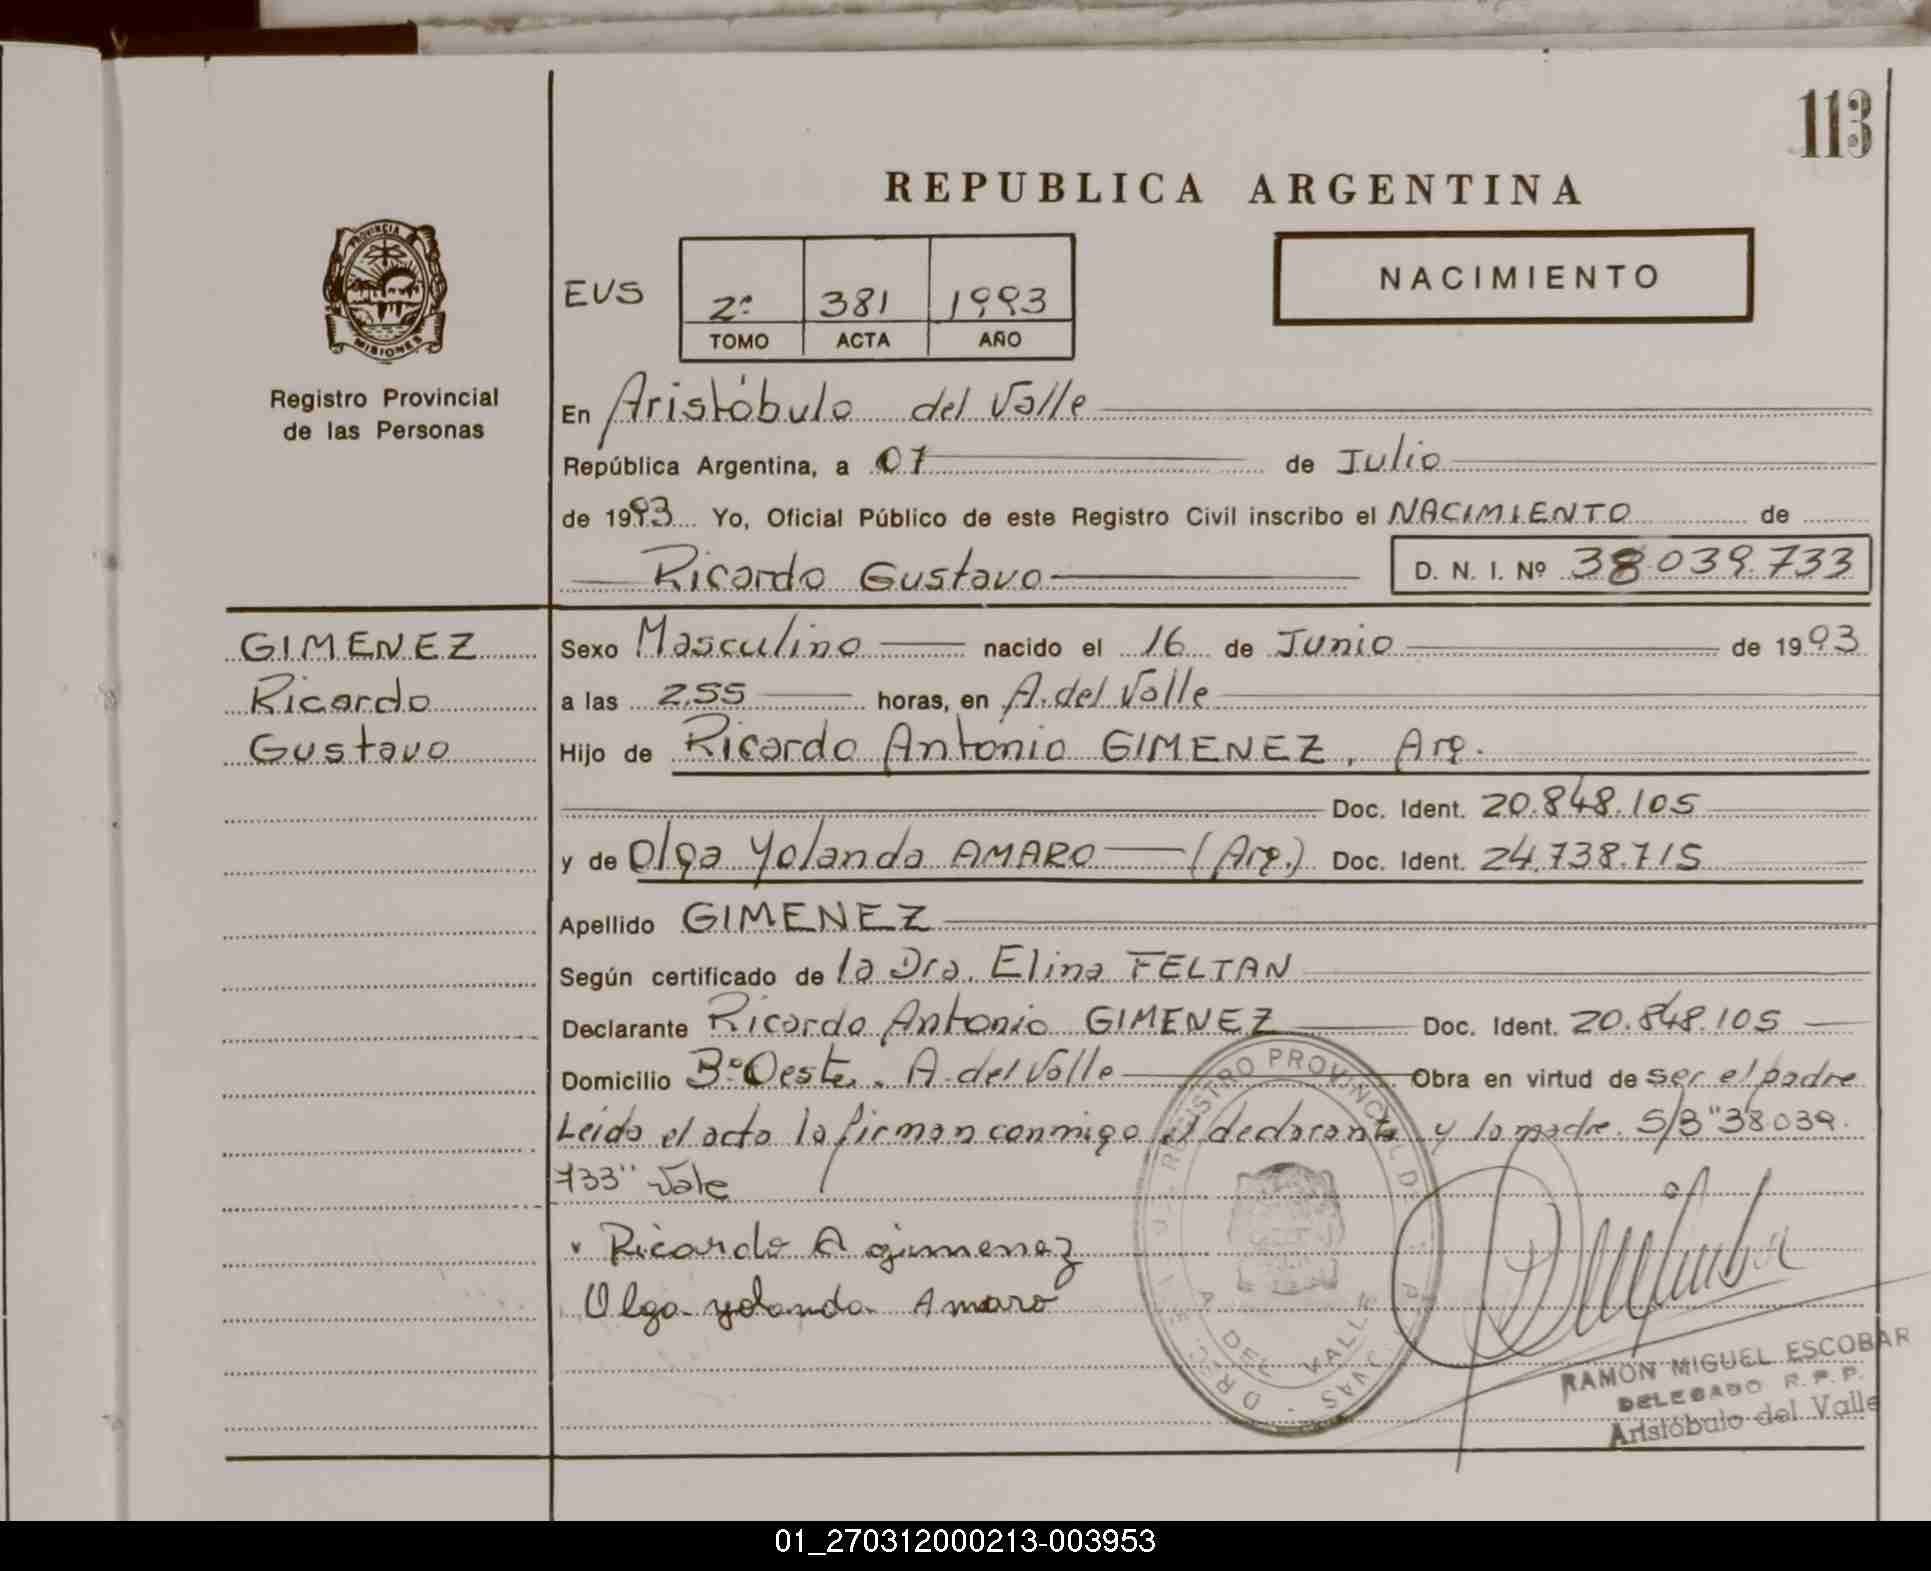 113
REPUBLICA ARGENTINA
PROVINCIA
MISIONES
Registro Provincial
de las Personas
NACIMIENTO
EVS 2º 381 1993
TOMO ACTA AÑO
En Aristóbulo del Valle
República Argentina, a 01 de Julio
de 1993 Yo, Oficial Público de este Registro Civil inscribo el NACIMIENTO de
Ricardo Gustavo D. N. I. Nº 38.039.733
GIMENEZ
Ricardo
Gustavo
Sexo Masculino nacido el 16 de Junio de 1993
a las 2,55 horas, en A. del Valle
Hijo de Ricardo Antonio GIMENEZ, Arg.
Doc. Ident. 20.848.105
y de Olga Yolanda AMARO (Arg.) Doc. Ident. 24.738.715
Apellido GIMENEZ
Según certificado de la Dra. Elina FELTAN
Declarante Ricardo Antonio GIMENEZ Doc. Ident. 20.848.105
Domicilio Bº Oeste. A. del Valle Obra en virtud de ser el padre
Leida el acta la firman conmigo el declarante y la madre. S/B "38039.
733" Vale
Ricardo A gimenez
Olga yolanda Amaro
REGISTRO PROVINCIAL
A. DEL VALLE
RAMON MIGUEL ESCOBAR
DELEGADO R. P. P.
Aristóbulo del Valle
01_270312000213-003953